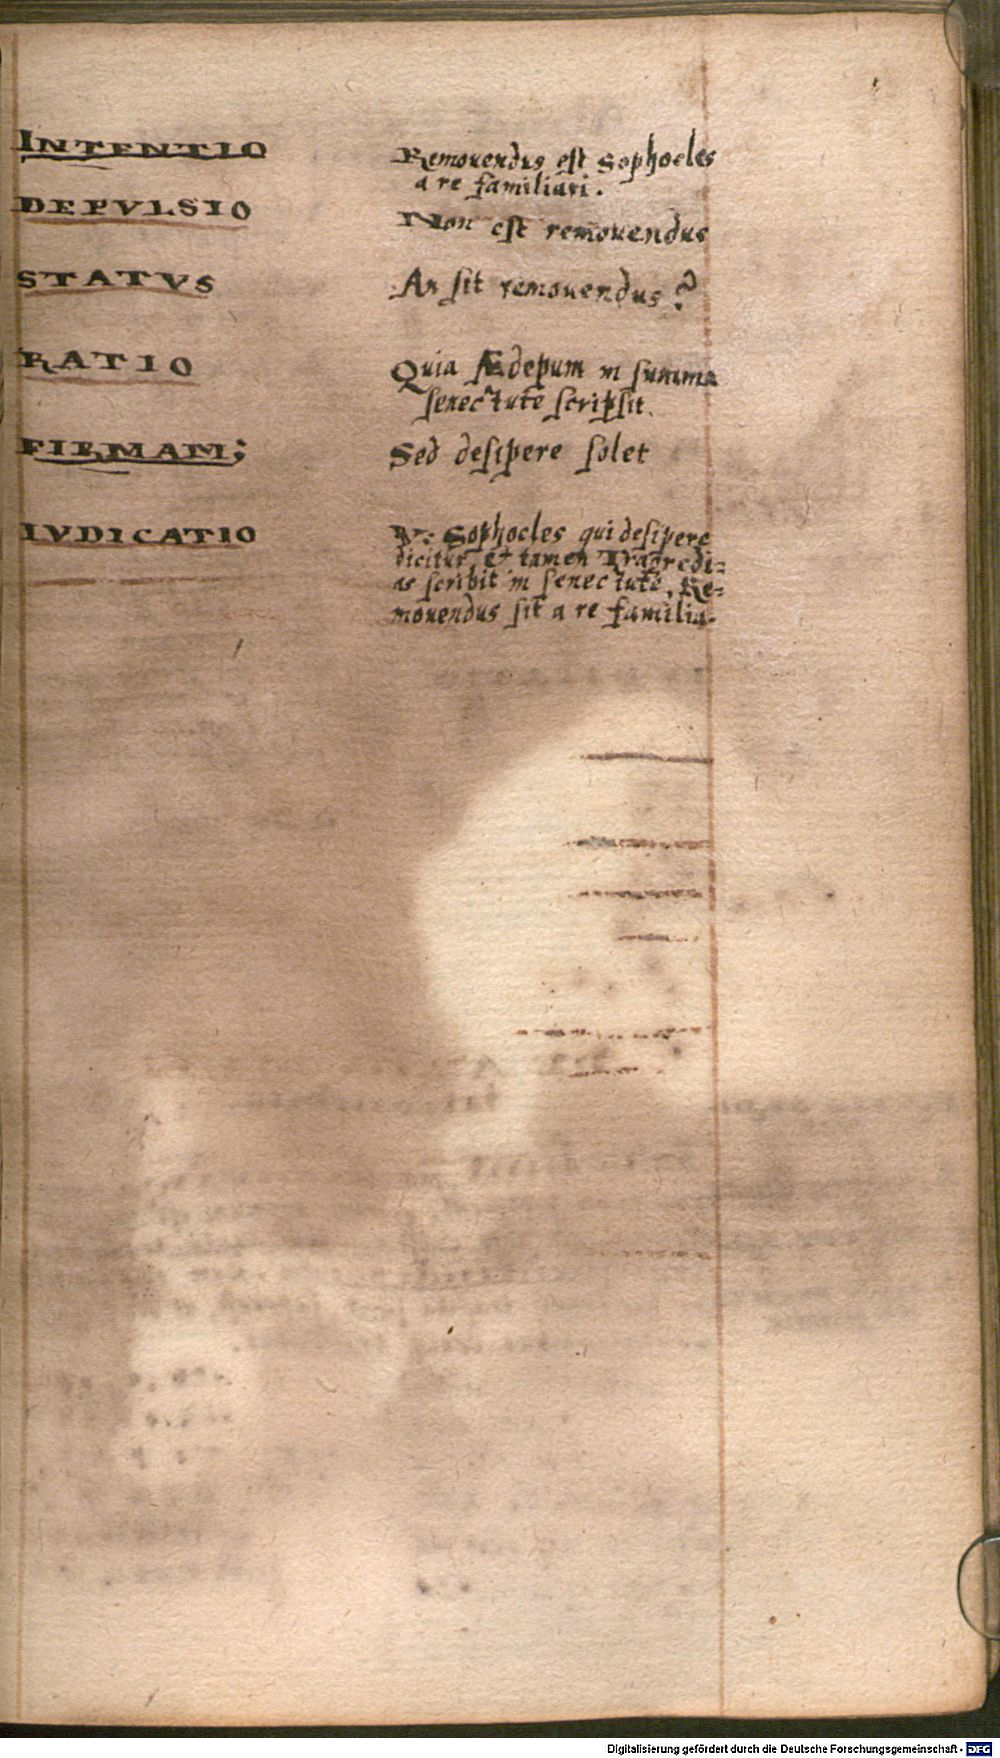 INTENTIO Remouendus est Sophocles
a re familiari.
DEPVLSIO Non est remouendus
STATVS An sit remouendus?
RATIO Quia Ædepum in summa
senectute scripsit.
FIRMAM: Sed desipere solet
IVDICATIO Sophocles qui desipere
dicitur, et tamen Tragredi=
as scribit in senectute, Re=
mouendus sit a re familia.
Digitalisierung gefördert durch die Deutsche Forschungsgemeinschaft - DFG